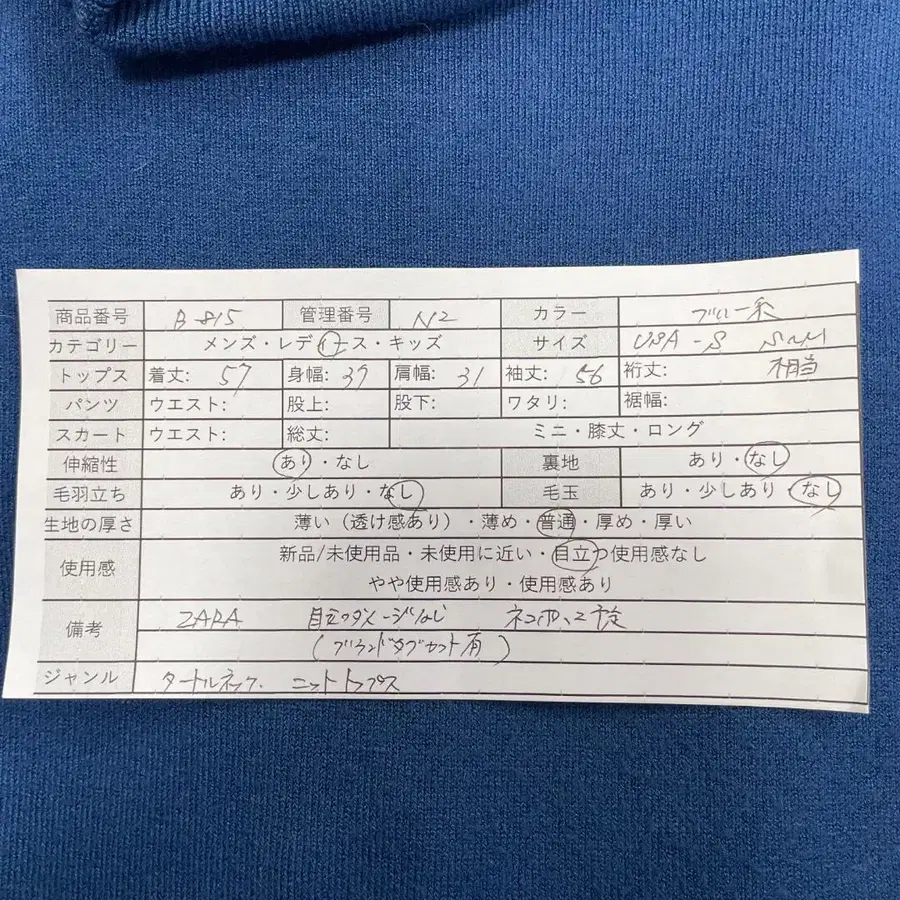 商品番号 B-815 管理番号 N2 カラー ブルー系
カテゴリー メンズ・レディース・キッズ サイズ USA-S S~M
トップス 着丈: 57 身幅: 37 肩幅: 31 袖丈: 56 裄丈: 相当
パンツ ウエスト: 股上: 股下: ワタリ: 裾幅:
スカート ウエスト: 総丈: ミニ・膝丈・ロング
伸縮性 あり・なし 裏地 あり・なし
毛羽立ち あり・少しあり・なし 毛玉 あり・少しあり・なし
生地の厚さ 薄い（透け感あり）・薄め・普通・厚め・厚い
使用感 新品/未使用品・未使用に近い・目立つ使用感なし
やや使用感あり・使用感あり
備考 ZARA 目立つダメージなし ネコポス
(ブランドタグカット有)
ジャンル タートルネック. ニットトップス